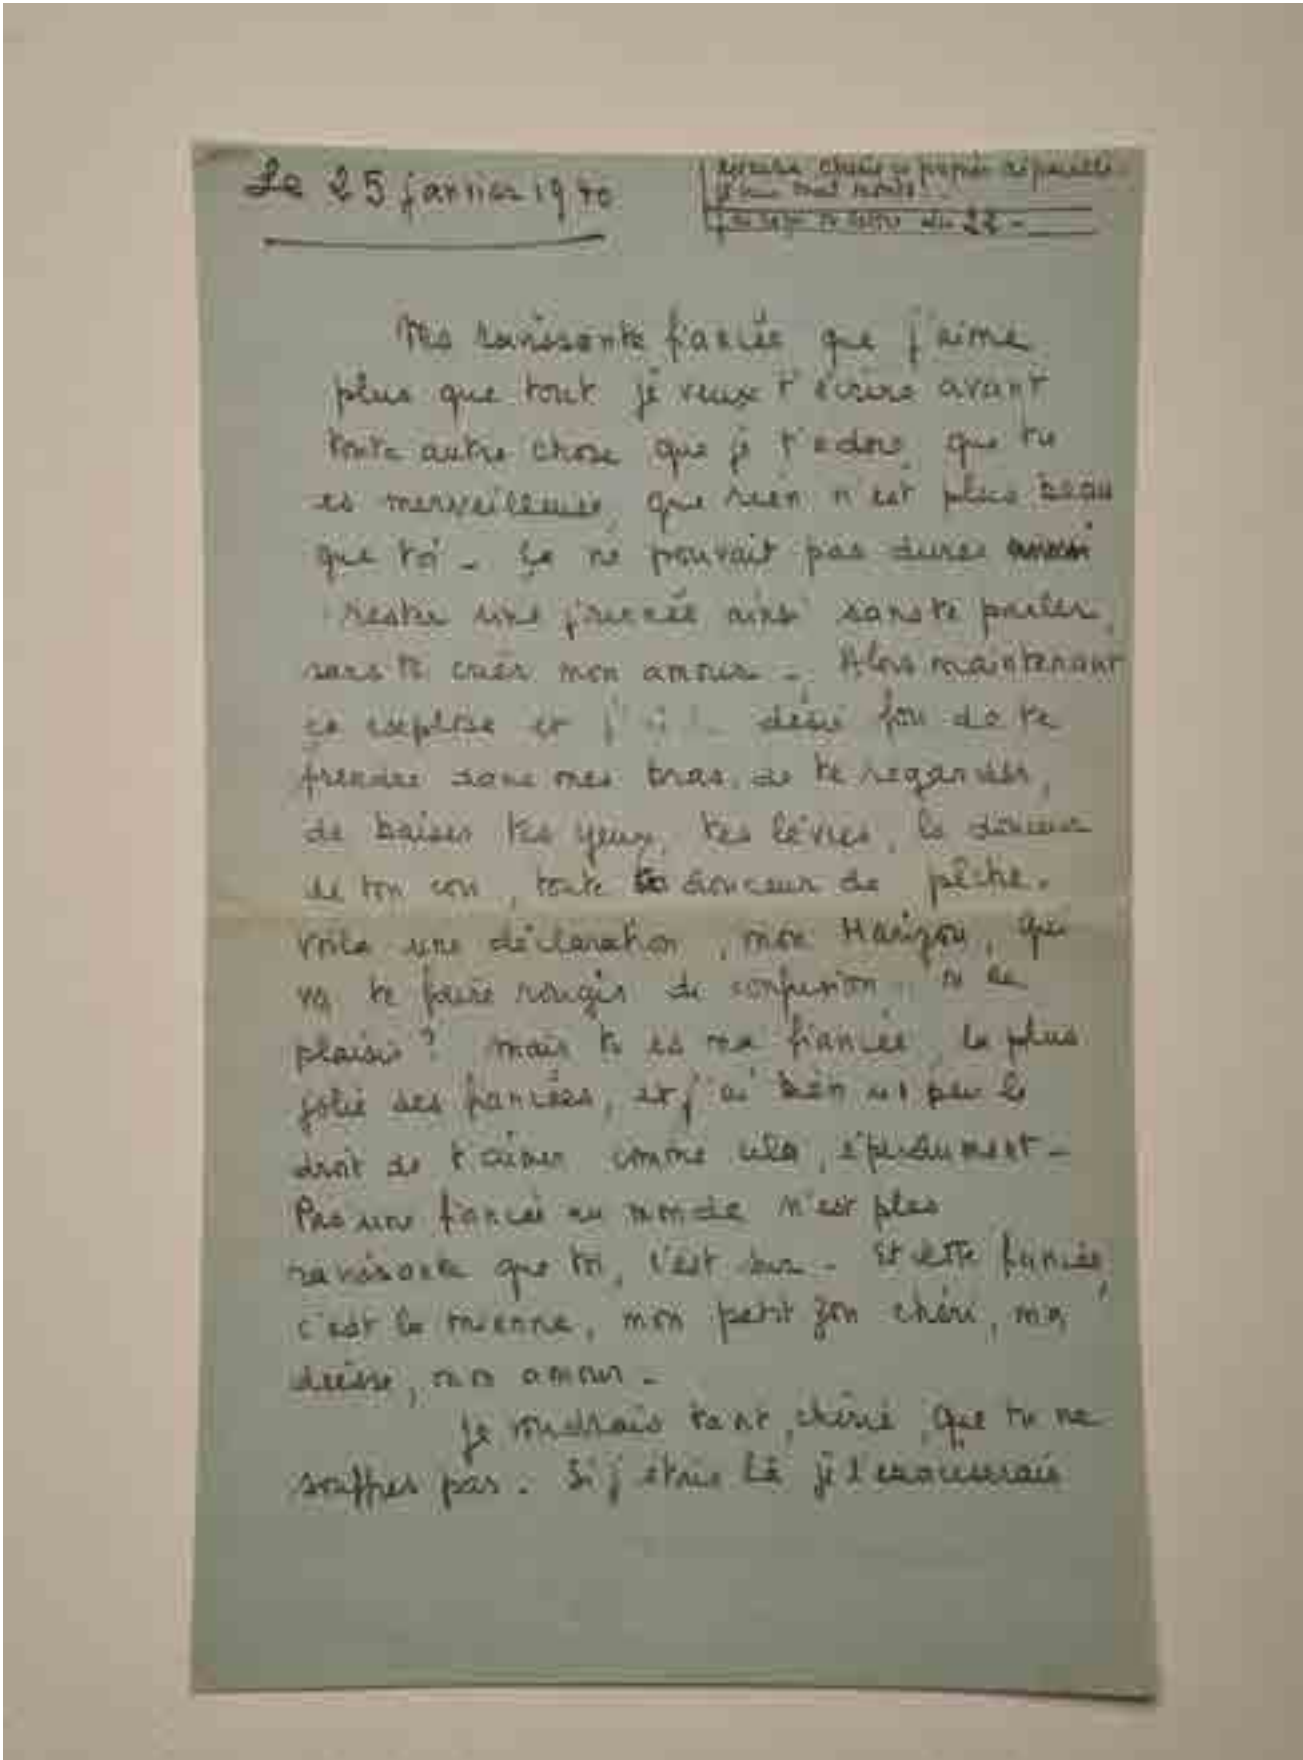 Le 25 janvier 1940
excuse chérie ce papier dépareillé
je suis mal monté
j'ai reçu ta lettre du 22 -
Ma ravissante fiancée que j'aime
plus que tout je veux t'écrire avant
toute autre chose que je t'adore, que tu
es merveilleuse, que rien n'est plus beau
que toi - Ça ne pouvait pas durer
rester une journée ainsi sans te parler,
sans te crier mon amour - Alors maintenant
ça explose et j' désir fou de te
prendre dans mes bras, de te regarder,
de baiser tes yeux, tes lèvres, la douceur
de ton cou, toute ta douceur de pêche.
Voila une déclaration, mon Marizou, qui
va te faire rougir de confusion de
plaisir ? mais tu es ma fiancée, la plus
jolie des fiancées, et j'ai bien un peu le
droit de t'aimer comme cela, éperdument -
Pas une fiancée au monde n'est plus
ravissante que toi, c'est sur - Et cette fiancée,
c'est la mienne, mon petit zou chéri, ma
déesse, mon amour -
Je voudrais tant, chérie, que tu ne
souffres pas. Si j'étais là je